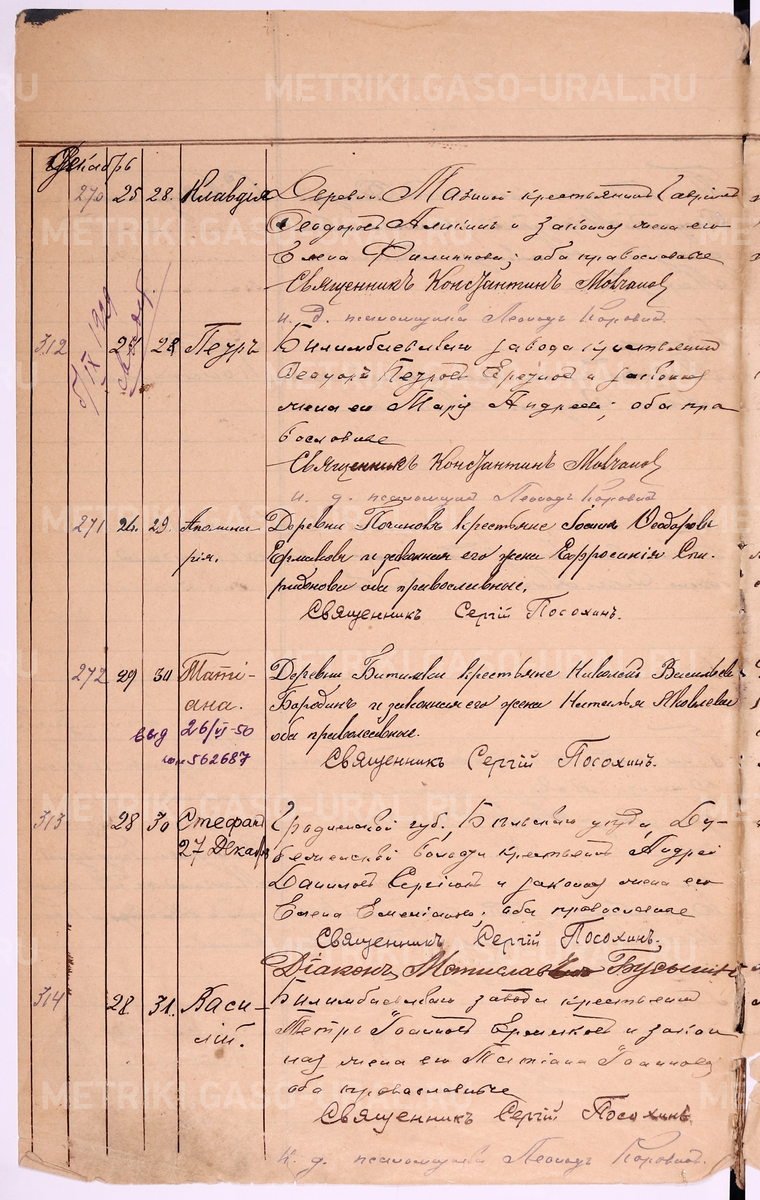 METRIKI.GASO-URAL.RU
Декабрь
270 25 28. Клавдія Деревни крестьянинъ Гавріилъ
Феодоровъ и законная жена его
Елена Филиппова; оба православные
Священникъ Константинъ Мовчановъ
и. д. псаломщика Леонидъ Коровинъ
312 28 Петръ Билимбаевскаго завода крестьянинъ
Феодоръ Петровъ и законная
жена его Марія Андреева; оба пра
вославные
Священникъ Константинъ Мовчановъ
и. д. псаломщика Леонидъ Коровинъ
271 26. 29. Аполина-
рія.
Деревни Починокъ крестьяне Іоаннъ Феодоровъ
Ермаковъ и законная его жена Евфросинія Спи-
ридонова оба православные.
Священникъ Сергій Посохинъ.
272 29 30 Таті-
ана.
Деревни Битимки крестьяне Николай Васильевъ
Бородинъ и законная его жена Наталья Яковлева
оба православные.
выд 26/VI-50
562687
Священникъ Сергій Посохинъ.
313 28 30 Стефанъ
27 Декабря
Гродненской губ., Бѣльскаго уѣзда,
волости крестьянинъ Андрей
Даниловъ и законная жена его
Елена; оба православные
Священникъ Сергій Посохинъ.
Діаконъ Мстиславъ
314 28 31. Васи-
лій.
Билимбаевскаго завода крестьянинъ
Петръ Іоанновъ и закон
ная жена его Татіана Іоаннова
оба православные
Священникъ Сергій Посохинъ
и. д. псаломщика Леонидъ Коровинъ.